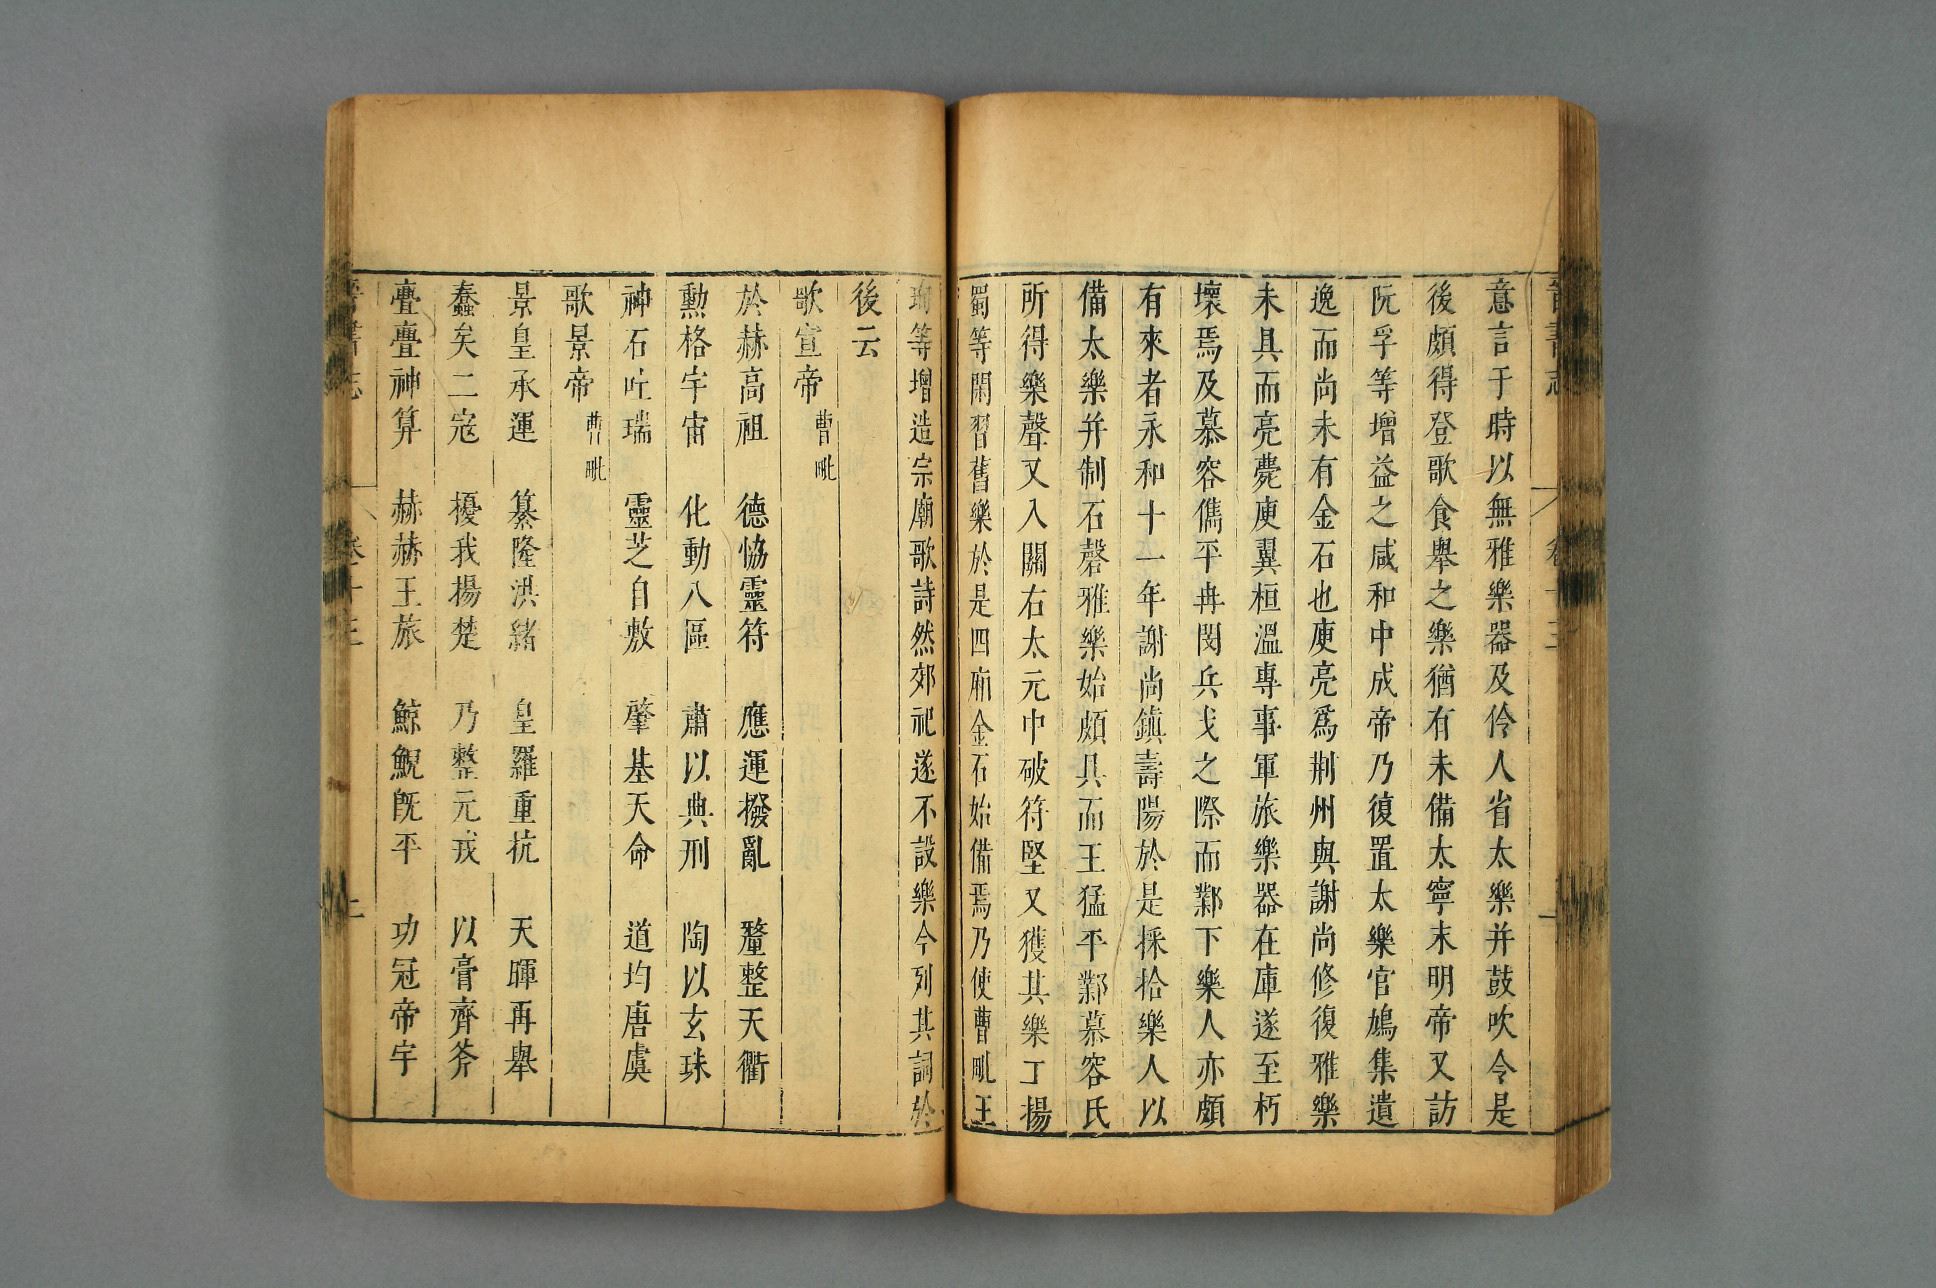 晉書志 卷十三
意言于時以無雅樂器及伶人省太樂并鼓吹令是
後頗得登歌食舉之樂猶有未備太寧末明帝又訪
阮孚等增益之咸和中成帝乃復置太樂官鳩集遺
逸而尚未有金石也庾亮爲荆州與謝尚修復雅樂
未具而亮薨庾翼桓溫專事軍旅樂器在庫遂至朽
壞焉及慕容儁平冉閔兵戈之際而鄴下樂人亦頗
有來者永和十一年謝尚鎮壽陽於是採拾樂人以
備太樂并制石磬雅樂始頗具而王猛平鄴慕容氏
所得樂聲又入關右太元中破符堅又獲其樂工揚
蜀等閑習舊樂於是四廂金石始備焉乃使曹毗王
珣等增造宗廟歌詩然郊祀遂不設樂今列其詞於
後云
歌宣帝 曹毗
於赫高祖 德協靈符 應運撥亂 釐整天衢
勲格宇宙 化動八區 肅以典刑 陶以玄珠
神石吐瑞 靈芝自敷 肇基天命 道均唐虞
歌景帝 曹毗
景皇承運 纂隆洪緒 皇羅重抗 天暉再舉
蠢矣二寇 擾我揚楚 乃整元戎 以膏齊斧
亹亹神算 赫赫王旅 鯨鯢旣平 功冠帝宇
晉書志 卷十三